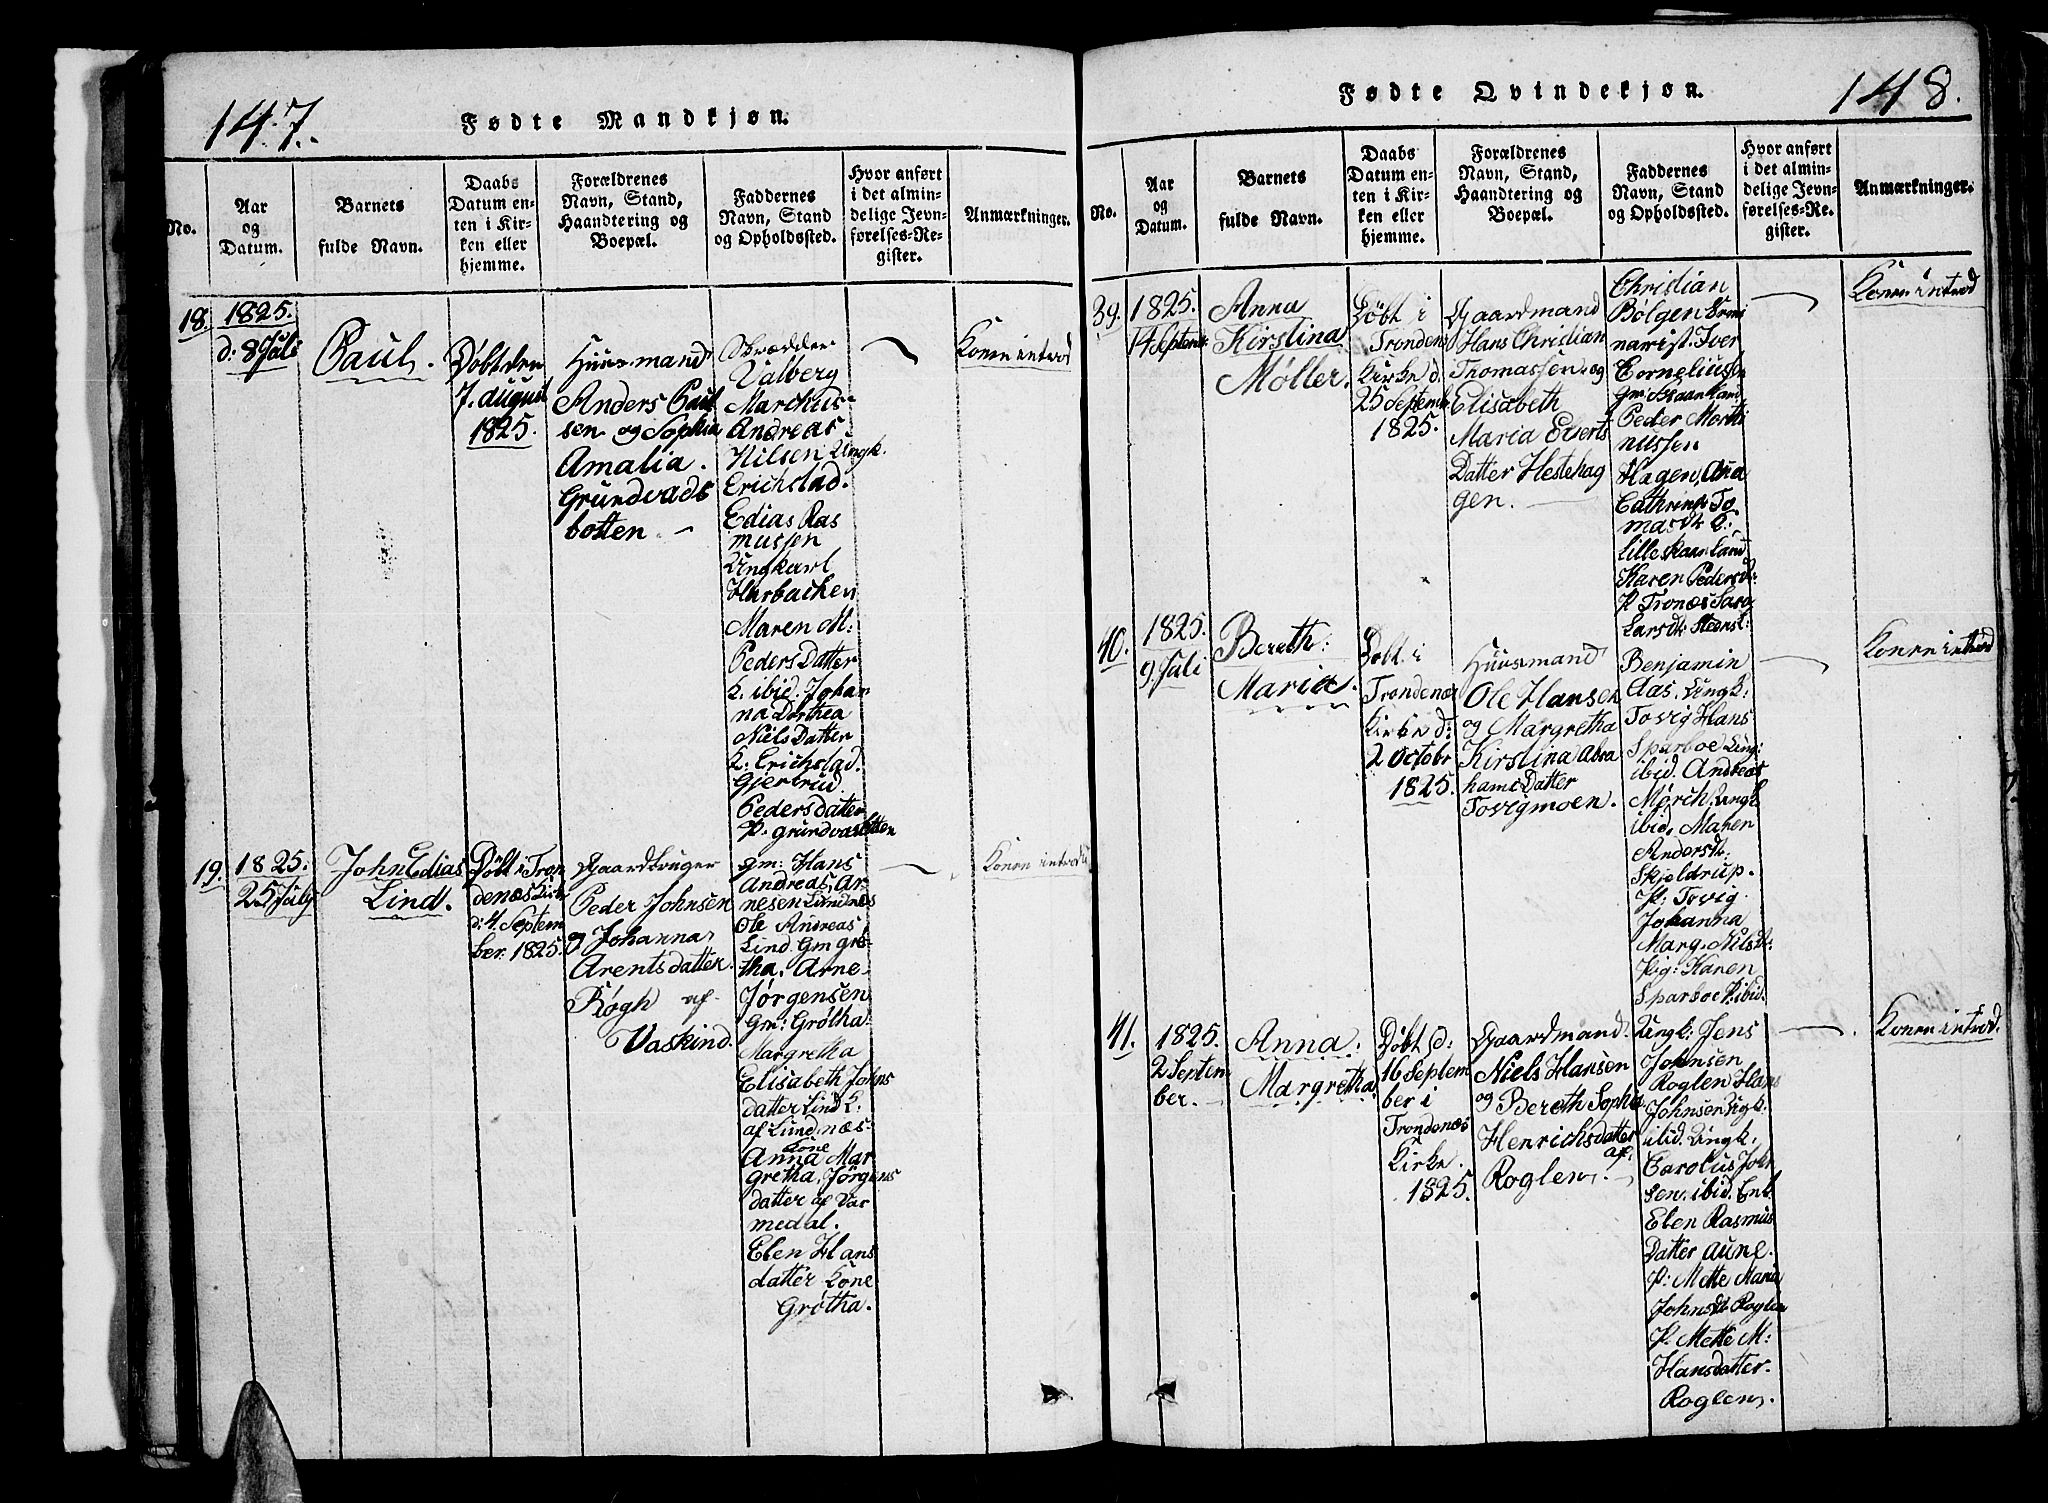 147.
Fødte Mandkjøn.
No.
Aar
og
Datum.
Barnets
fulde Navn.
Daabs
Datum en-
ten i Kir-
ken eller
hjemme.
Forældrenes
Navn, Stand,
Haandtering og
Boepæl.
Faddernes
Navn, Stand
og Opholdssted.
Hvor anført
i det almin-
delige Jevn-
førelses-Re-
gister.
Anmærkninger.
18.
1825.
d: 8 Juli
Paul.
Døbt den
7. august
1825.
Huusmand
Anders Paul
sen og Sophia
Amalia.
Grundvads
botten. -
Skrædder
Valberg
Marchus
Andreas
Nilsen Ungk.
Erichstad.
Edias Ras
mussen
Ungkarl
Harbachen
Maren M:
Peders Datter
K. ibid. Johan
na Dorthea
Niels Datter
K: Erichstad.
Gjertrud
Pedersdatter
P. grundvasbotten
Konen introd
19.
1825.
25 July
John Edias
Lind.
Døbt i Tron
denæs Kirke
d: 4. Septem
ber: 1825.
Gaardbruger
Peder Johnsen
og Johanna
Arentsdatter.
Røgh af
Vaskind.
gm: Hans
Andreas, Ar
nesen Lundnæs
Ole Andreas
Lind. Gm grø-
tha. Arne
Jørgensen
Gm: Grøtha.
Margretha
Elisabeth Johns
datter Lind K:
af Lundnæs-
Kone
Anna Mar
gretha, Jørgens
datter af Vår
medal.
Elen Hans
datter Kone
Grøtha.
Konen introd
148.
Fødte Qvindekjøn.
No.
Aar
og
Datum.
Barnets
fulde Navn.
Daabs
Datum en-
ten i Kir-
ken eller
hjemme.
Forældrenes
Navn, Stand,
Haandtering og
Boepæl.
Faddernes
Navn, Stand
og Opholdssted.
Hvor anført
i det almin-
delige Jevn-
førelses-Re-
gister.
Anmærkninger.
39.
1825.
14 Septembr
Anna
Kirstina
Møller.
Døbt i
Trondenæs
Kirke d.
25 Septemb
1825.
Gaardmand
Hans Christian
Thomassen og
Elisabeth
Maria Everts
Datter Hestehag
gen.
Christian
Bølgen Semi
narist. Iver
Corneliussen
Peder Morti
nussen
Hagen, Ana
Cathrina To
masdt K:
Lilleskarsland
Karen Pedersdt:
P Tronæs Sara
Larsdt:
Konen introd
40.
1825.
9. Juli
Bereth
Maria.
Døbt i
Trondenæs
Kirke d:
2 Octobr
1825.
Huusmand
Ole Hansen
og Margretha
Kirstina Abra
hams Datter
Tovigmoen.
Benjamin
Aas. Ungk:
Tovig Hans
Sparboe Ung:
ibid. Andreas
Mørch, Ungk
ibid. Maren
Andersdt.
Skjeldrup.
P: Tovig
Johanna
Marg. Nilsdt:
Pig: Karen
Sparboe P. ibid.
Konen introd
41.
1825.
2 Septem
ber.
Anna
Margretha
Døbt d:
16 Septem
ber i
Trondenæs
Kirke.
1825.
Gaardmand.
Niels Hansen
og Bereth Sophia
Henrichsdatter
af.
Roglen.
Ungk: Jens
Johnsen
Roglen Hans
Johnsen Ugk.
ibid. Ungk.
Carolus John
sen. ibid. Enk.
Elen Rasmus
Datter aune.
P: Mette Maria
Johnsdt Roglen
P. Mette M:
Hansdatter.
Roglen.
Konen introd.